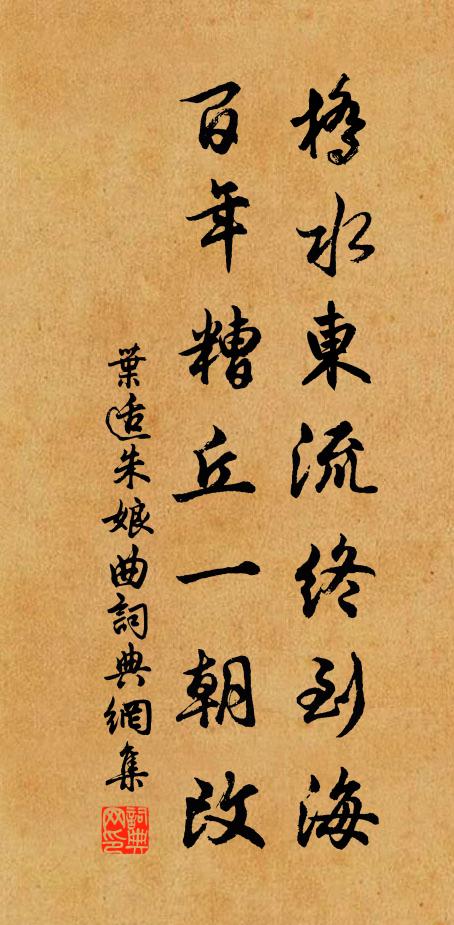 橋水東流終到海
百年糟丘一朝改
葉适朱娘曲詞典網集
詞典网印